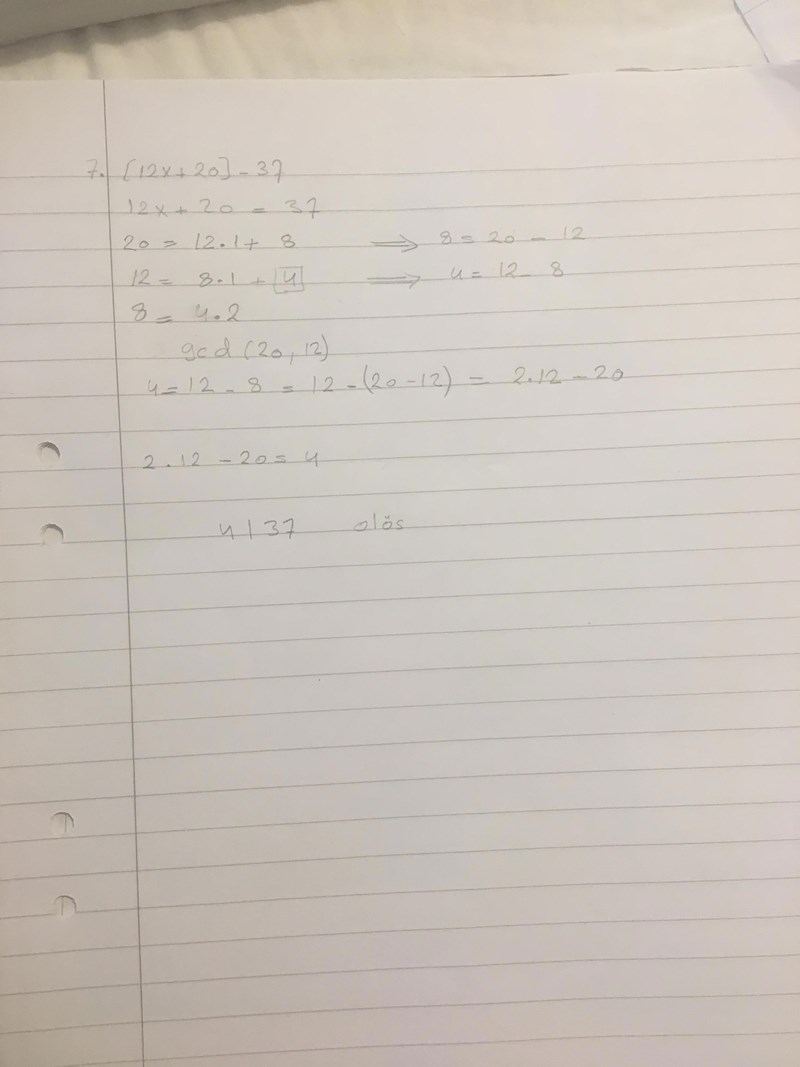 7. [12x + 20] - 37
12x + 20 = 37
20 = 12·1 + 8 ⟹ 8 = 20 - 12
12 = 8·1 + 4 ⟹ 4 = 12 - 8
8 = 4·2
gcd (20, 12)
4 = 12 - 8 = 12 - (20 - 12) = 2·12 - 20
2·12 - 20 = 4
4 | 37 olös